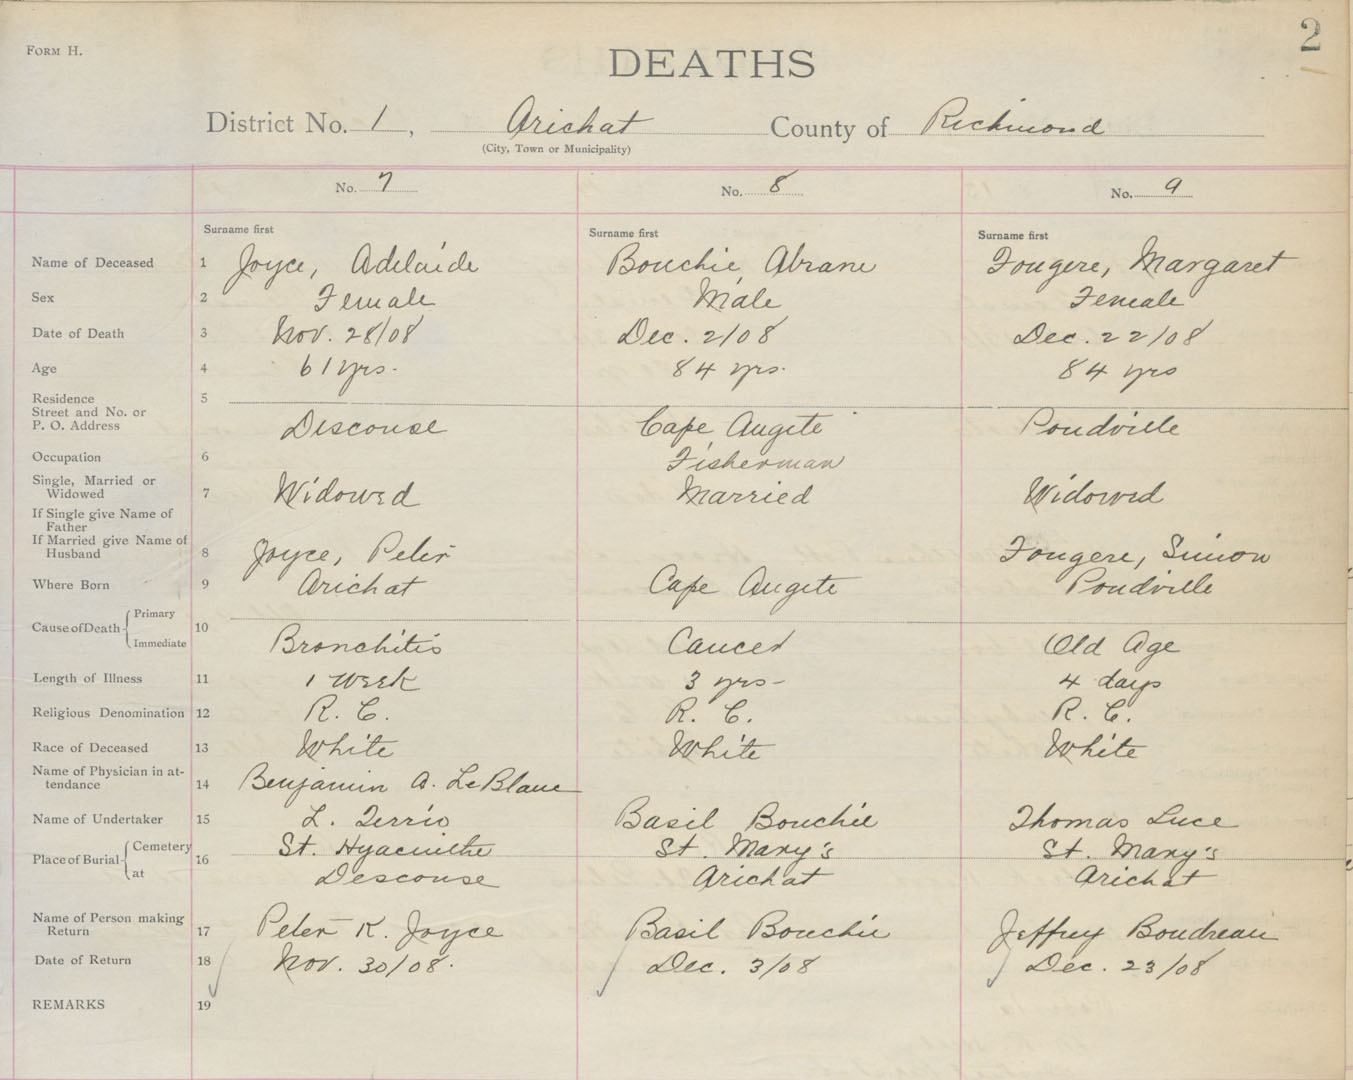 FORM H.
2
DEATHS
District No. 1, Arichat County of Richmond
(City, Town or Municipality)
No. 7 No. 8 No. 9
Surname first Surname first Surname first
Name of Deceased 1 Joyce, Adelaide Bouchie, Abram Fougere, Margaret
Sex 2 Female Male Female
Date of Death 3 Nov. 28/08 Dec. 2/08 Dec. 22/08
Age 4 61 yrs. 84 yrs. 84 yrs
Residence 5
Street and No. or
P. O. Address Descouse Cape Augete Poudville
Occupation 6 Fisherman
Single, Married or
Widowed 7 Widowed Married Widowed
If Single give Name of
Father
If Married give Name of
Husband 8 Joyce, Peter Fougere, Simon
Where Born 9 Arichat Cape Augete Poudville
Cause of Death 10 Primary
Immediate Bronchitis Cancer Old Age
Length of Illness 11 1 week 3 yrs- 4 days
Religious Denomination 12 R. C. R. C. R. C.
Race of Deceased 13 White White White
Name of Physician in at-
tendance 14 Benjamin A. LeBlanc
Name of Undertaker 15 L. Terrio Basil Bouchie Thomas Luce
Place of Burial 16 Cemetery St. Hyacinthe St. Mary's St. Mary's
at Descouse Arichat Arichat
Name of Person making
Return 17 Peter K. Joyce Basil Bouchie Jeffrey Boudreau
Date of Return 18 Nov. 30/08. Dec. 3/08 Dec. 23/08
REMARKS 19